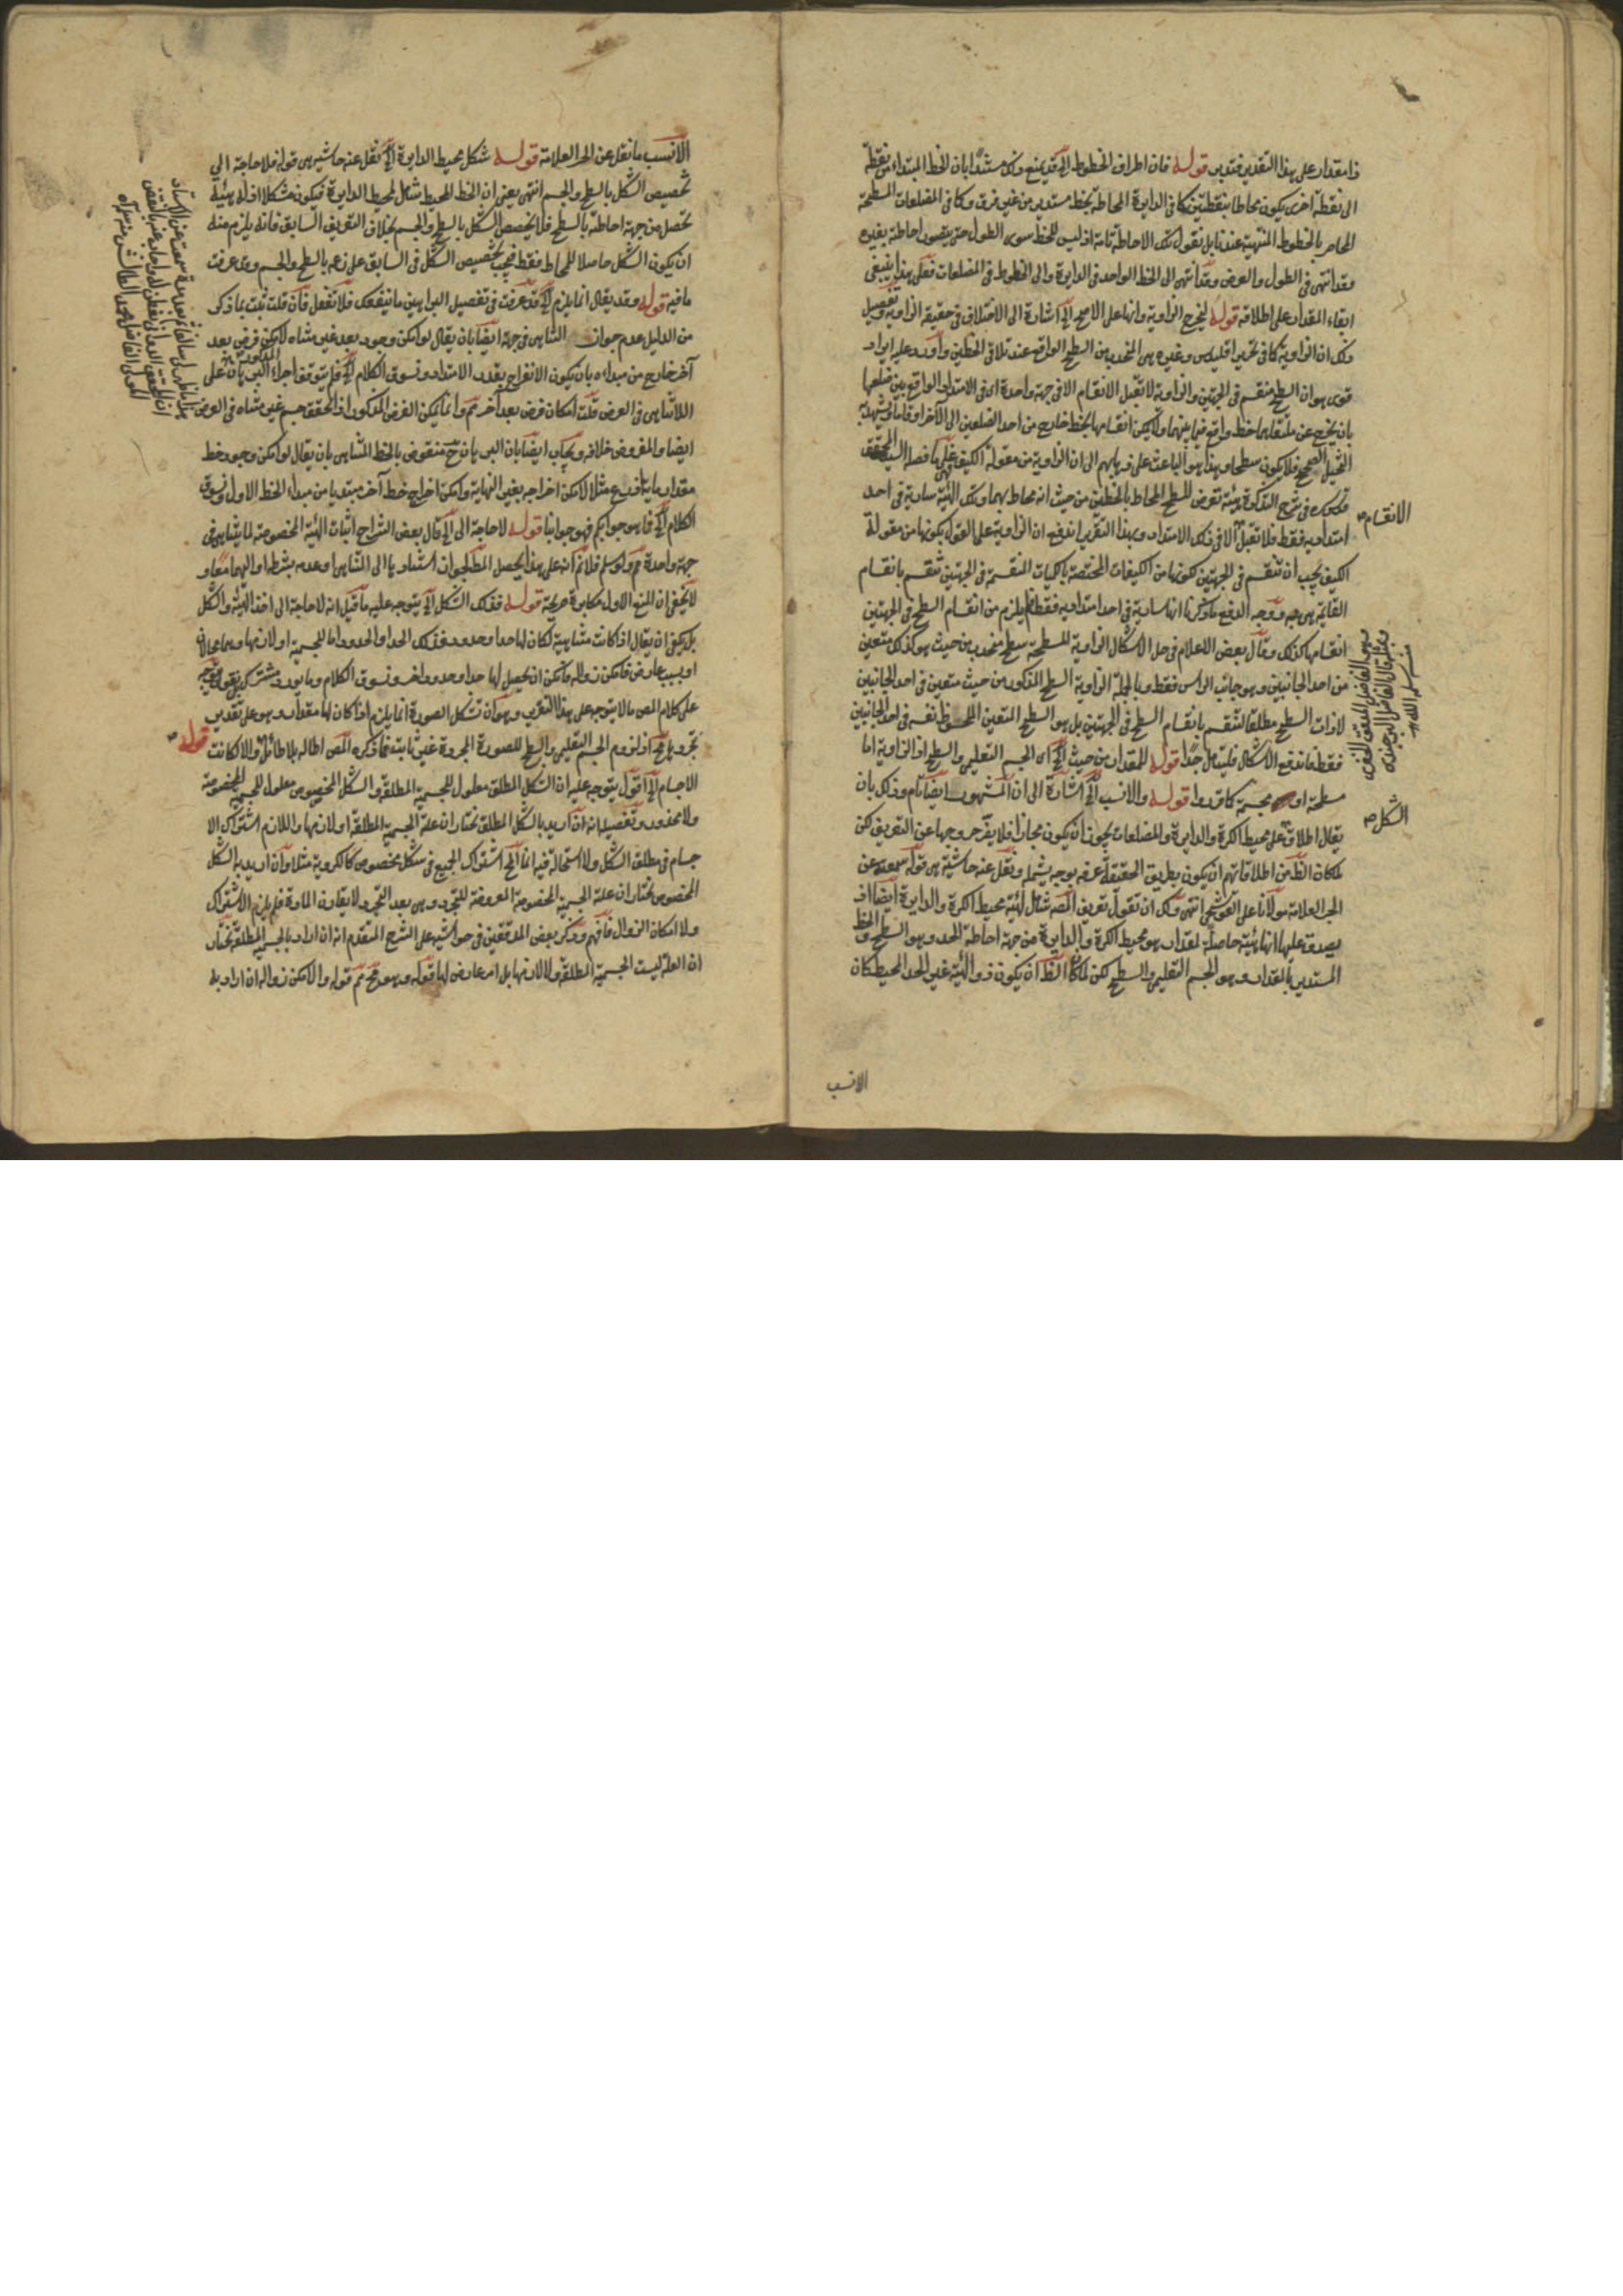 ذا مقدار على هذا التقدير فتدبر قوله فان اطراف الخطوط الخ قد يمنع ذلك مستندا بان الخط المبتداء من نقطة
الى نقطة اخرى يكون محاطا بنقطتين كما في الدايرة المحاطة بخط مستدير من غير فرق وكما في المضلعات المسطحة
المحاط بالخطوط المنتهية عندنا بل نقول تلك الاحاطة تامة اذ ليس للخط سوى الطول حتى يتصور احاطة بغيره
وقد انتهى في الطول والعرض وقد انتهى الى الخط الواحد في الدايرة والى الخطوط في المضلعات فعلى هذا ينبغي
ابقاء المقدار على اطلاقه قوله ليخرج الزاوية وانها على الاصح الخ اشارة الى الاختلاف في حقيقة الزاوية وتفصيل
ذلك ان الزاوية كما في تحرير اقليدس وغيره هي المنحدب من السطح الواقع عند تلاقي الخطين واورد عليه ايراد
قوى هو ان السطح منقسم في الجهتين والزاوية لا تقبل الانقسام الا في جهة واحدة اى في الامتداد الواقع بين ضلعيها
بان يخرج عن ملتقاهما خط واقع فيما بينهما ولا يمكن انقسامها بخط خارج من احد الضلعين الى الاخر
التخيل الصحيح فلا يكون سطحا وهذا هو الباعث على ذهابهم الى ان الزاوية من مقولة الكيف على ما فصله السيد المحقق
قدس سره في شرح التذكرة هيئة تعرض للسطح المحاط بالخطين من حيث انه محاط بهما وتلك الهيئة سارية في احد
امتداديه فقط فلا تقبل الا في ذلك الامتداد وبهذا التقرير اندفع ان الزاوية على القول بكونها من مقولة
الكيف يجب أن تنقسم في الجهتين لكونها من الكيفيات المختصة بالكميات المنقسمة في الجهتين تنقسم بانقسام
القائمة هي به ووجه الدفع ما ذكرنا انها سارية في احد امتداديه فقط فلم يلزم من انقسام السطح في الجهتين
انقسامها كذلك وقال بعض الاعلام في حل الاشكال الزاوية المسطحة سطح منحدب من حيث هو كذلك متعين
من احد الجانبين وهو جانب الراس فقط وبالجملة الزاوية السطح المذكور من حيث متعين في احد الجانبين
لا ذات السطح مطلقا لتنقسم بانقسام السطح في الجهتين بل هو السطح المتعين الملحوظ نفسه في احد الجانبين
فقط فاندفع الاشكال فليتامل جدا قوله للمقدار من حيث الخ اى الجسم التعليمي والسطح اذ الزاوية اما
مسطحة او مجسمة كما قرروا قوله والانسب الخ اشارة الى ان المشهور ايضا تام وذلك بان
يقال اطلاقه على محيط الكرة والدايرة والمضلعات يجوز ان يكون مجازا فلا يضر خروجها عن التعريف لكن
لما كان الظ من اطلاقاتهم ان يكون بطريق الحقيقة عرفه بوجه يشمله ونقل عنه حاشية هي قوله
الجد العلامة مولانا على القوشجي انتهى ولك ان تقول تعريف المصه شامل لهيئة محيط الكرة والدايرة ايضا اذ
يصدق عليها انها هيئة حاصلة لمقدار هو محيط الكرة والدايرة من جهة احاطة الحد وهو السطح والخط
المستدير بالمقدار وهو الجسم التعليمي والسطح لكن لما كان الظ ان يكون ذو الهيئة غير الحد المحيط كان
الانقسام صح
الشكل صح
الانسب
الانسب ما نقل عن الجد العلامة قوله شكل محيط الدايرة الخ نقل عنه حاشية هي قوله فلا حاجة الى
تخصيص الشكل بالسطح والجسم انتهى يعني ان الخط المحيط شامل لمحيط الدايرة فيكون مشكلا اذ له هيئة
تحصل من جهة احاطته بالسطح فلا يخصص الشكل بالسطح والجسم بخلاف التعريف السابق فانه يلزم منه
ان يكون الشكل حاصلا للمحاط فقط فيجب تخصيص الشكل في السابق على زعمه بالسطح والجسم وقد عرفت
ما فيه قوله وقد يقال انما يلزم الخ قد عرفت في تفصيل البراهين ما ينفعك فلا تغفل فان قلت ثبت بما ذكر
من الدليل عدم جواز التناهي في جهة ايضا بان يقال لو امكن وجود بعد غير متناه لامكن فرض بعد
آخر خارج من مبداءه بان يكون الانفراج بقدر الامتداد ونسوق الكلام الخ فلم يتوقف اجراء البرهان على
اللاتناهى في العرض قلت امكان فرض بعد آخر ثم وانما يمكن الفرض المذكور اذا تحقق جسم غير متناه في العرض
ايضا والمفروض خلافه ويجاب ايضا بان البرهان ح منقوض بالخط المتناهي بان يقال لو امكن وجود خط
مقداره مائة ذراع مثلا لامكن اخراجه بغير النهاية وامكن اخراج خط آخر مبتديا من مبداء الخط الاول ونسوق
الكلام الخ فما هو جوابكم فهو جوابنا قوله لا حاجة الى الخ قال بعض الشراح اثبات الهيئة المخصوصة لما يتناهى في
جهة واحدة ثم ولو سلم فلا ثم انه على هذا يحصل المط لجواز استنادها الى التناهي او عدمه بشرط او اليهما معا و
لا يخفى ان المنع الاول مكابرة صريحة قوله فذلك الشكل الخ يتوجه عليه ما قيل انه لا حاجة الى اخذ الهيئة والشكل
بل يكفي ان يقال اذا كانت متناهية لكان لها حد او حدود فذلك الحد او الحدود اما للجسمية او لازمها وهما محالان
او بسبب عارض فامكن زواله فامكن ان يحصل لها حد او حدود اخر ونسوق الكلام وما يورد
على كلام المص ما لا يتوجه على هذا التقرير وهو ان تشكل الصورة انما يلزم اذا كان لها مقدار وهو على تقدير
تجردها ثم اذ لزوم الجسم التعليمي والسطح للصورة المجردة غير ثابت فما ذكره المص اطالة بلا طائل والا لكانت
قوله صح
الاجسام الخ اقول يتوجه عليه ان الشكل المطلق معلول للجسمية المطلقة والشكل المخصوص معلول للجسمية المخصوصة
ولا محذور وتفصيله انه ان اريد بالشكل المطلق نختار ان علة الجسمية المطلقة او لازمها واللازم اشتراك الا
جسام في مطلق الشكل ولا استحالة فيه انما المح اشتراك الجميع في شكل مخصوص كالكروية مثلا وان اريد به الشكل
المخصوص نختار ان علة الجسمية المخصوصة المعروضة للتجرد وهي بعد التجرد لا يقارن المادة فلم يلزم الاشتراك
ولا امكان الزوال فافهم وذكر بعض المدققين في حواشيه على الشرح المتقدم انه ان اراد بالجسمية المطلقة نختار
ان العلة ليست الجسمية المطلقة ولا لازمها بل امر عارض لها قوله وهو مح ثم قوله والا لامكن زواله ان اراد به